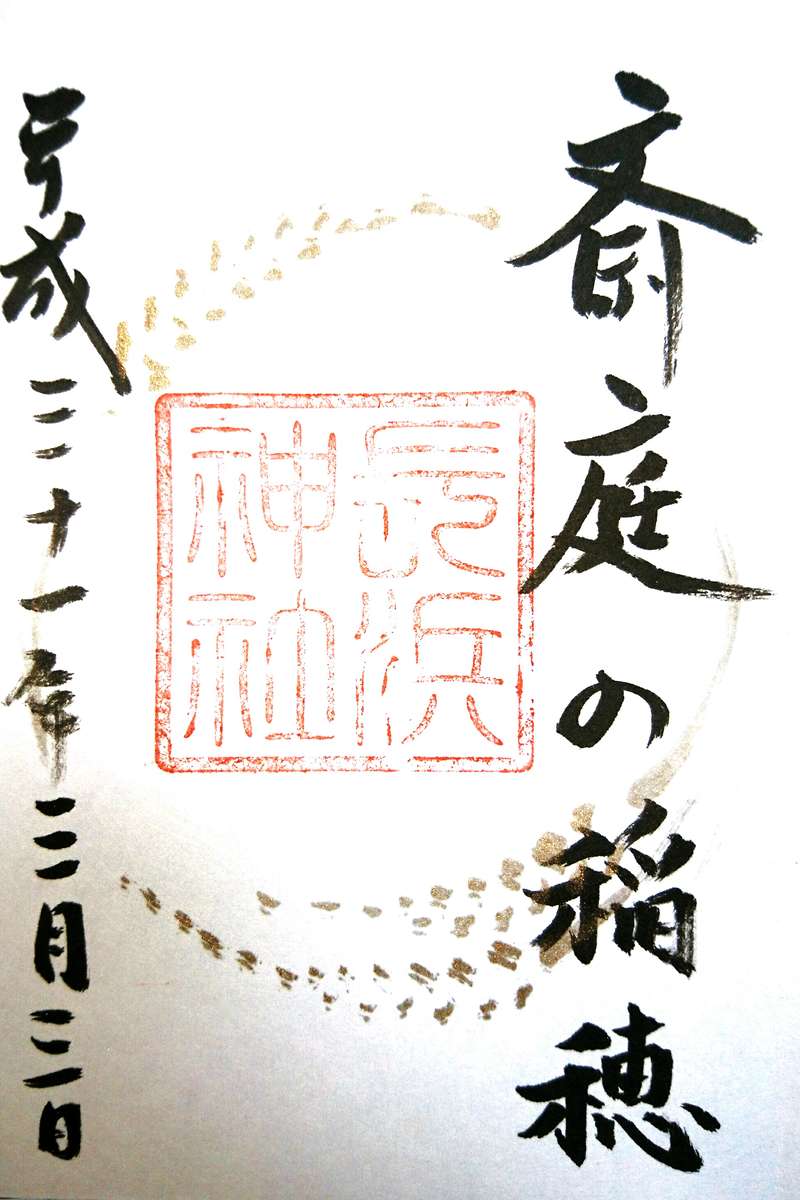 斎庭の稲穂
長浜
神社
平成三十一年三月三日